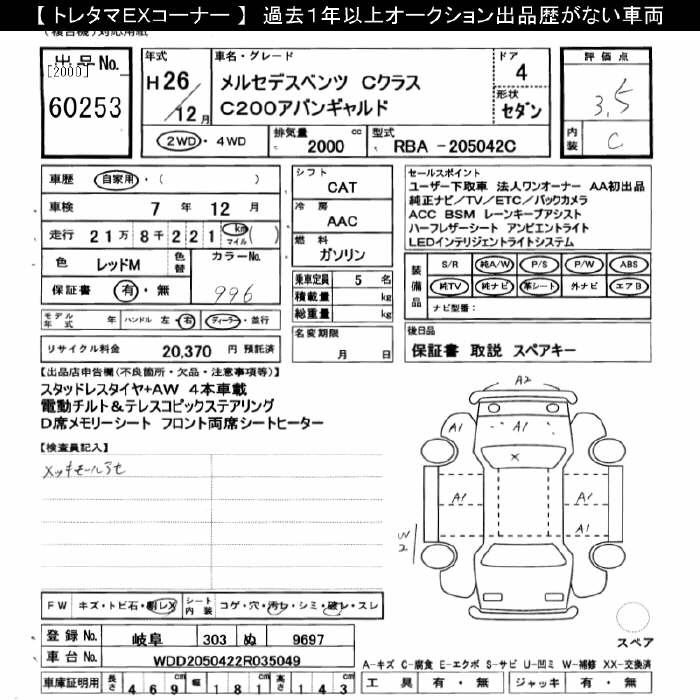 【 トレタマEXコーナー 】 過去1年以上オークション出品歴がない車両
出品No.
[2000]
60253
年式
H 26
12月
車名・グレード
メルセデスベンツ Cクラス
C200アバンギャルド
ドア
4
形状
セダン
2WD・4WD
排気量 cc
2000
型式
RBA -205042C
評価点
3.5
内装
C
車歴 自家用・( )
車検 7 年 12 月
走行 21万8千221 km マイル ( )
色 レッドM 色替 カラーNo.
996
保証書 有・無
モデル年式 年 ハンドル 左・右 ディーラー・並行
リサイクル料金 20,370 円 預託済
シフト
CAT
冷房
AAC
燃料
ガソリン
乗車定員 5 名
積載量 kg
総重量 kg
名変期限
月 日
セールスポイント
ユーザー下取車 法人ワンオーナー AA初出品
純正ナビ/TV/ETC/バックカメラ
ACC BSM レーンキープアシスト
ハーフレザーシート アンビエントライト
LEDインテリジェントライトシステム
装備品
S/R 純A/W P/S P/W ABS
純TV 純ナビ 革シート 外ナビ エアB
ナビ型番:
後日品
保証書 取説 スペアキー
【出品店申告欄(不良箇所・欠品・注意事項等)】
スタッドレスタイヤ+AW 4本車載
電動チルト&テレスコピックステアリング
D席メモリーシート フロント両席シートヒーター
【検査員記入】
メッキモール
A2
A1
A1
A1
X
A1
A1
A1
W2
FW キズ・トビ石・割レX シート内装 コゲ・穴・汚レ・シミ・破レ・スレ
登録No. 岐阜 303 ぬ 9697
車台No. WDD2050422R035049
車庫証明用 長さ 469 cm 幅 181 cm 高さ 143 cm
スペア
A-キズ C-腐食 E-エクボ S-サビ U-凹ミ W-補修 XX-交換済
工具 有・無 ジャッキ 有・無